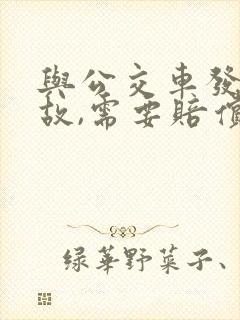 與公交車發
故,需要賠償
绿華野菜子、